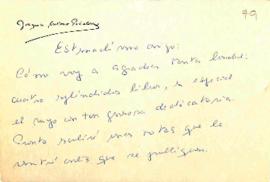 79
Estimadísimo amigo:
Cómo voy a agradecer tanta bondad:
cuatro espléndidos libros, en especial
el suyo con tan generosa dedicatoria.
Pronto saldrá unas notas que le
antes que se publiquen.